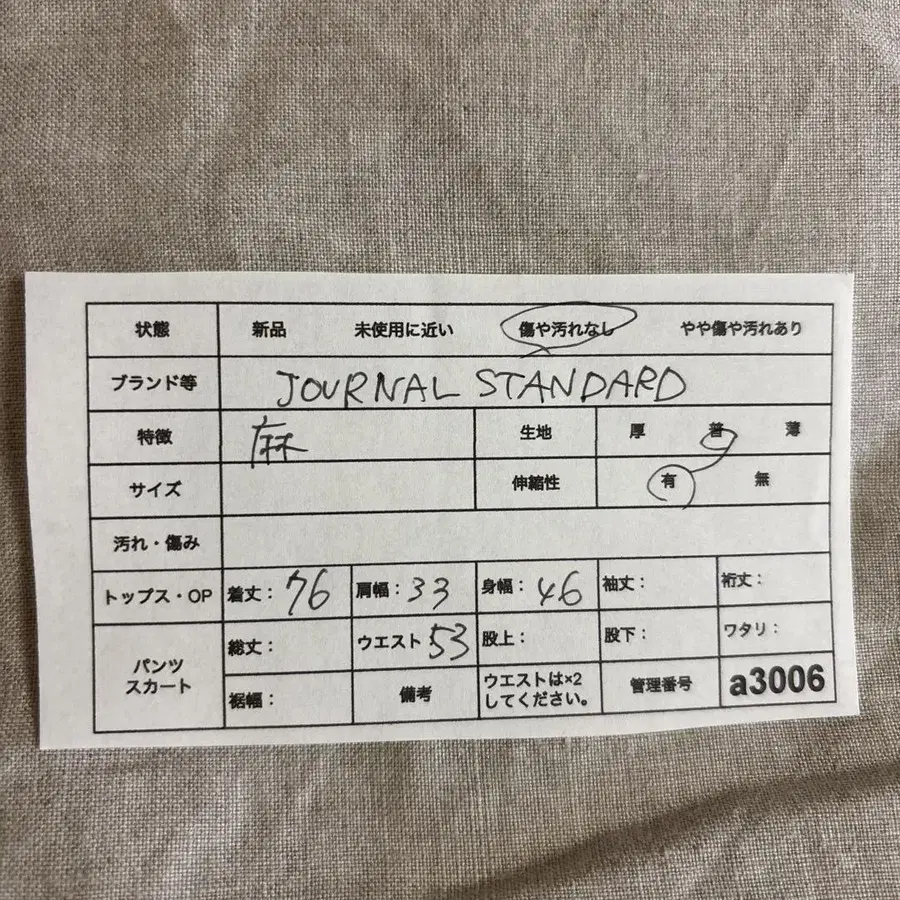 状態 新品 未使用に近い 傷や汚れなし やや傷や汚れあり
ブランド等 JOURNAL STANDARD
特徴 麻 生地 厚 普 薄
サイズ 伸縮性 有 無
汚れ・傷み
トップス・OP 着丈: 76 肩幅: 33 身幅: 46 袖丈: 裄丈:
パンツ スカート 総丈: ウエスト 53 股上: 股下: ワタリ:
裾幅: 備考 ウエストは×2 してください。 管理番号 a3006